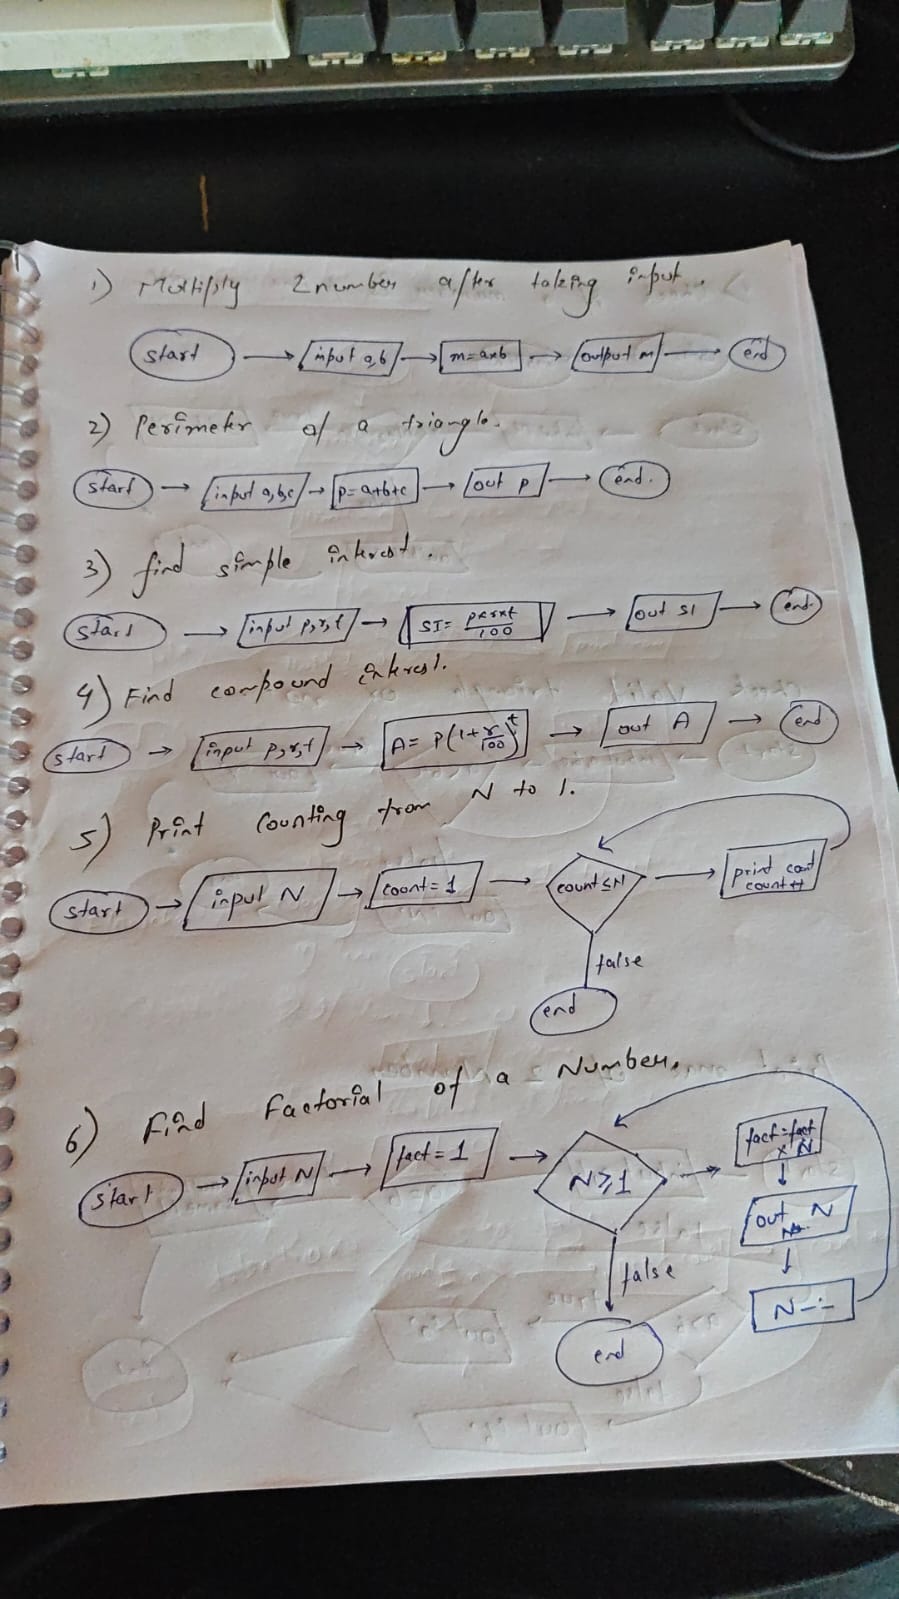 1) Multiply 2 number after taking input.
start input a,b m=axb output m end
2) Perimeter of a triangle.
start input a,b,c p= a+b+c out p end.
3) find simple interest.
start input p,r,t SI= pxrxt/100 out SI end.
4) Find compound interest.
start input p,r,t A= P(1+r/100)^t out A end
5) Print Counting from N to 1.
start input N count=1 count≤N print count
count++
false
end
6) Find Factorial of a Number.
start input N fact=1 N≥1 fact=fact
x N
out N
false
N--
end